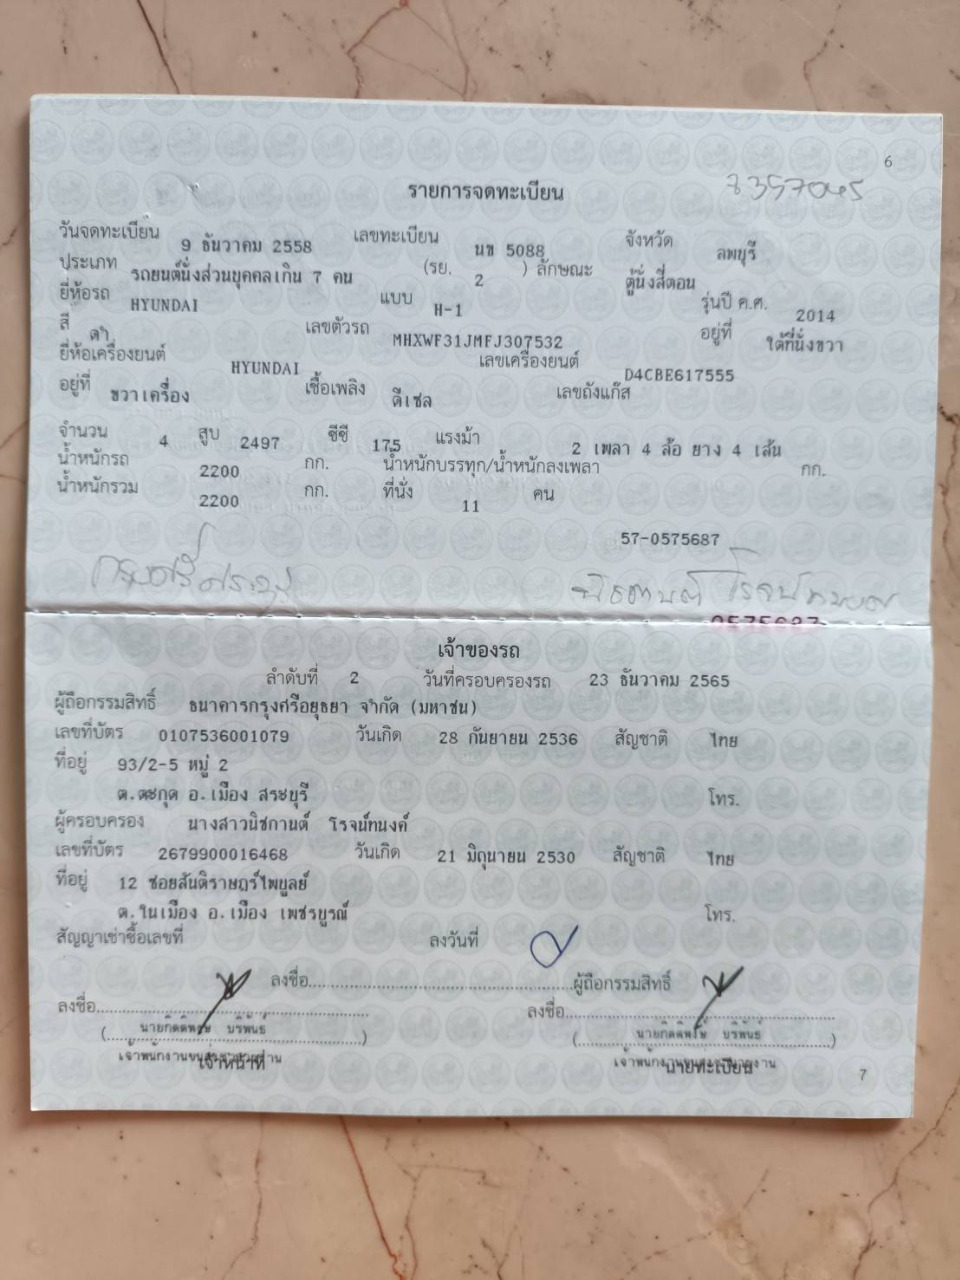 6
รายการจดทะเบียน
วันจดทะเบียน 9 ธันวาคม 2558 เลขทะเบียน นข 5088 จังหวัด ลพบุรี
ประเภท รถยนต์นั่งส่วนบุคคลเกิน 7 คน (รย. 2 ) ลักษณะ ตู้นั่งสี่ตอน
ยี่ห้อรถ HYUNDAI แบบ H-1 รุ่นปี ค.ศ. 2014
สี ดำ เลขตัวรถ MHXWF31JMFJ307532 อยู่ที่ ใต้ที่นั่งขวา
ยี่ห้อเครื่องยนต์ HYUNDAI เลขเครื่องยนต์ D4CBE617555
อยู่ที่ ขวาเครื่อง เชื้อเพลิง ดีเซล เลขถังแก๊ส
จำนวน 4 สูบ 2497 ซีซี 175 แรงม้า 2 เพลา 4 ล้อ ยาง 4 เส้น
น้ำหนักรถ 2200 กก. น้ำหนักบรรทุก/น้ำหนักลงเพลา กก.
น้ำหนักรวม 2200 กก. ที่นั่ง 11 คน
57-0575687
0575687
เจ้าของรถ
ลำดับที่ 2 วันที่ครอบครองรถ 23 ธันวาคม 2565
ผู้ถือกรรมสิทธิ์ ธนาคารกรุงศรีอยุธยา จำกัด (มหาชน)
เลขที่บัตร 0107536001079 วันเกิด 28 กันยายน 2536 สัญชาติ ไทย
ที่อยู่ 93/2-5 หมู่ 2
ต.ตะกุด อ.เมือง สระบุรี โทร.
ผู้ครอบครอง นางสาวนิชกานต์ โรจน์ทนงค์
เลขที่บัตร 2679900016468 วันเกิด 21 มิถุนายน 2530 สัญชาติ ไทย
ที่อยู่ 12 ซอยสันติราษฎร์ไพบูลย์
ต.ในเมือง อ.เมือง เพชรบูรณ์ โทร.
สัญญาเช่าซื้อเลขที่ ลงวันที่
ลงชื่อ ผู้ถือกรรมสิทธิ์
ลงชื่อ ลงชื่อ
เจ้าหน้าที่ นายทะเบียน
7